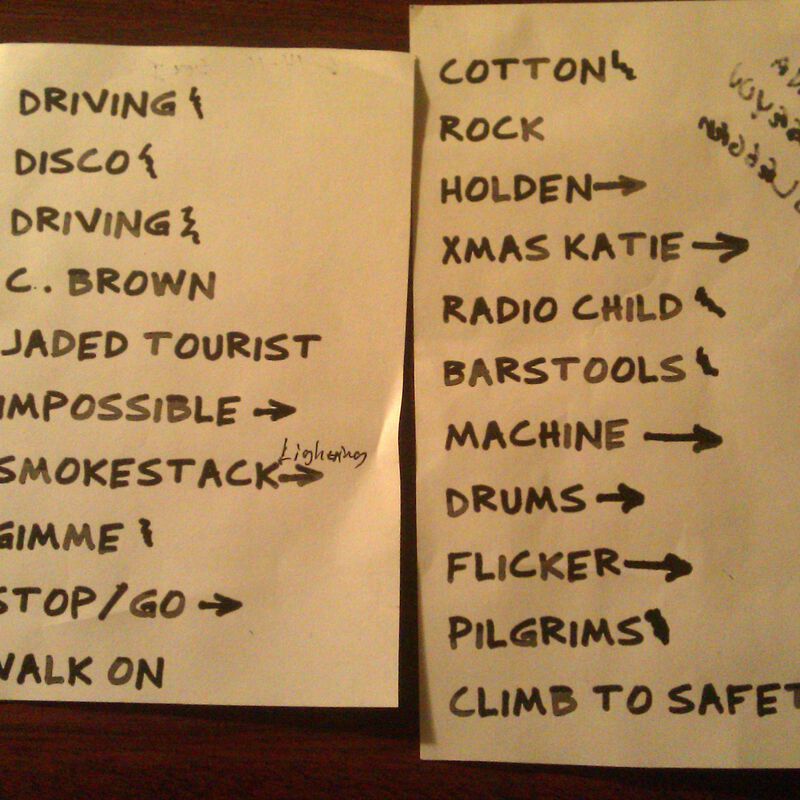 DRIVING
DISCO
DRIVING
C. BROWN
JADED TOURIST
IMPOSSIBLE →
SMOKESTACK Lightning →
GIMME
STOP/GO →
WALK ON
COTTON
ROCK
HOLDEN →
XMAS KATIE →
RADIO CHILD
BARSTOOLS
MACHINE →
DRUMS →
FLICKER →
PILGRIMS
CLIMB TO SAFET